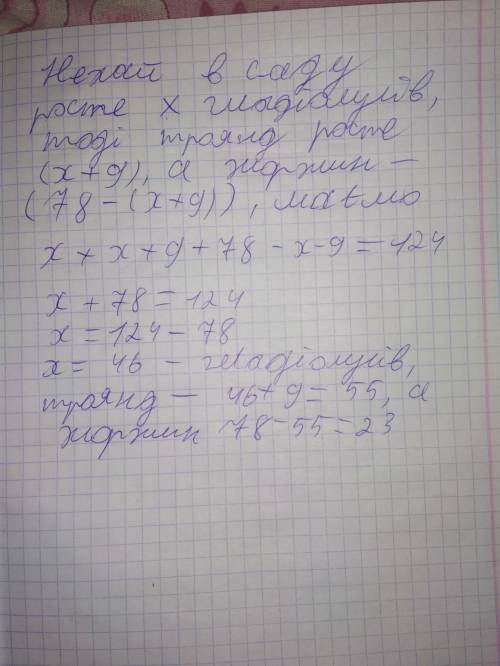 Нехай в саду
росте х гладіолусів,
тоді троянд росте
(х+9), а жоржин —
(78-(х+9)), маємо
х + х + 9 + 78 - х - 9 = 124
х + 78 = 124
х = 124 - 78
х = 46 - гладіолусів,
троянд — 46+9= 55, а
жоржин 78-55=23